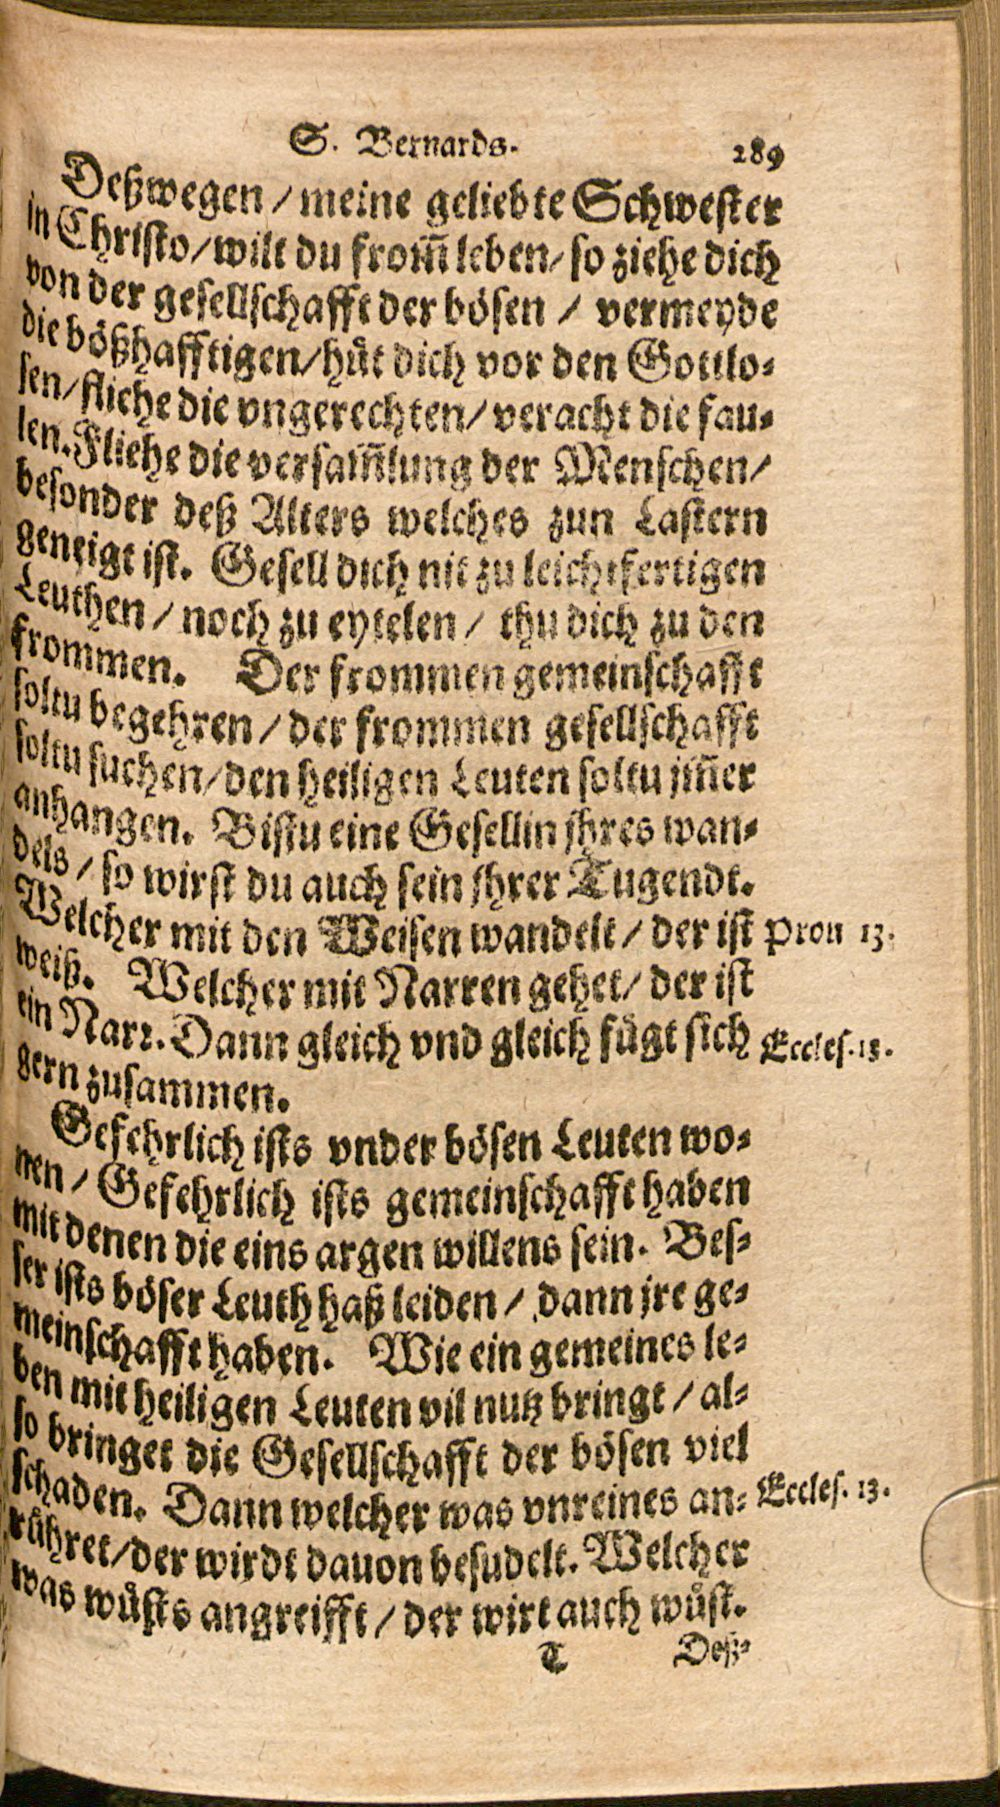 S. Bernards. 289
Deßwegen / meine geliebte Schwester
in Christo / wilt du from̃ leben / so ziehe dich
von der gesellschafft der bösen / vermeyde
die bößhafftigen / hüt dich vor den Gottlo-
sen / fliehe die vngerechten / veracht die fau-
len. Fliehe die versam̃lung der Menschen /
besonder deß Alters welches zun Lastern
geneigt ist. Gesell dich nit zu leichtfertigen
Leuthen / noch zu eytelen / thu dich zu den
frommen. Der frommen gemeinschafft
soltu begehren / der frommen gesellschafft
soltu suchen / den heiligen Leuten soltu jm̃er
anhangen. Bistu eine Gesellin jhres wan-
dels / so wirst du auch sein jhrer Tugendt.
Welcher mit den Weisen wandelt / der ist Prou 13.
weiß. Welcher mit Narren gehet / der ist
ein Narr. Dann gleich vnd gleich fügt sich Eccles. 13.
gern zusammen.
Gefehrlich ists vnder bösen Leuten wo-
nen / Gefehrlich ists gemeinschafft haben
mit denen die eins argen willens sein. Bes-
ser ists böser Leuth haß leiden / dann jre ge-
meinschafft haben. Wie ein gemeines le-
ben mit heiligen Leuten vil nutz bringt / al-
so bringet die Gesellschafft der bösen viel
schaden. Dann welcher was vnreines an- Eccles. 13.
rühret / der wirdt dauon besudelt. Welcher
was wüsts angreifft / der wirt auch wüst.
T Deß-